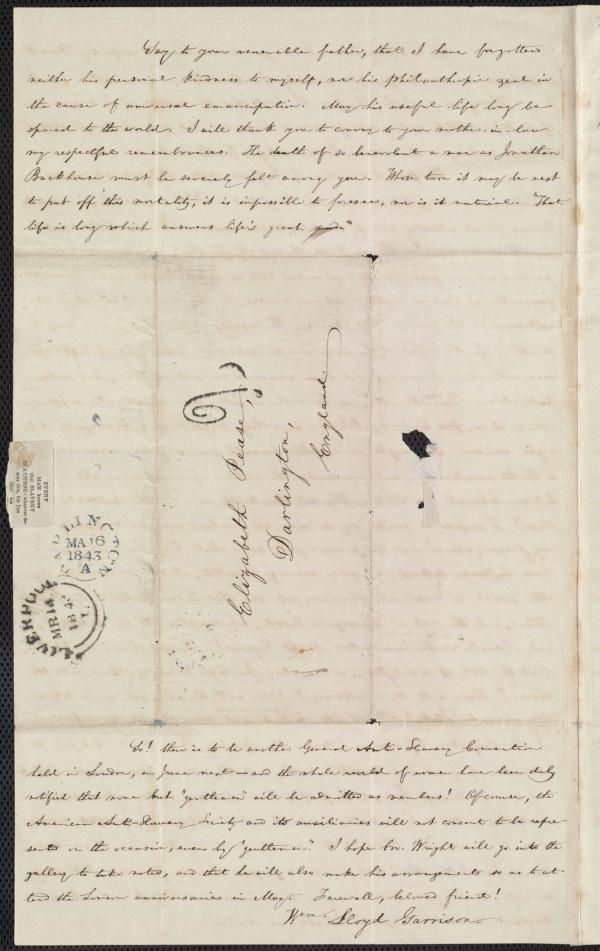 Say to your venerable father, that I have forgotten
neither his personal kindness to myself, nor his philanthropic zeal in
the cause of universal emancipation. May his useful life long be
spared to the world. I will thank you to convey to your mother-in-law
my respectful remembrances. The death of so benevolent a man as Jonathan
Backhouse must be severely felt among you. Whose turn it may be next
to put off this mortality, it is impossible to foresee, nor is it material. "That
life is long which answers life's great
Elizabeth Pease,
Darlington,
England
EVERY
MAN knows
that SLAVERY
IS A CURSE
DARLINGTON
MA 16
1843
A
LIVERPOOL
MR 14
1843
So! there is to be another General Anti-Slavery Convention
held in London, in June next—and the whole world of women have been duly
notified that none but "gentlemen" will be admitted as members! Of course, the
American Anti-Slavery Society and its auxiliaries will not consent to be repre-
sented on the occasion, even by "gentlemen." I hope bro. Wright will go into the
gallery to take notes, and that he will also make his arrangements so as to at-
tend the London anniversaries in May. Farewell, beloved friend!
Wm. Lloyd Garrison.